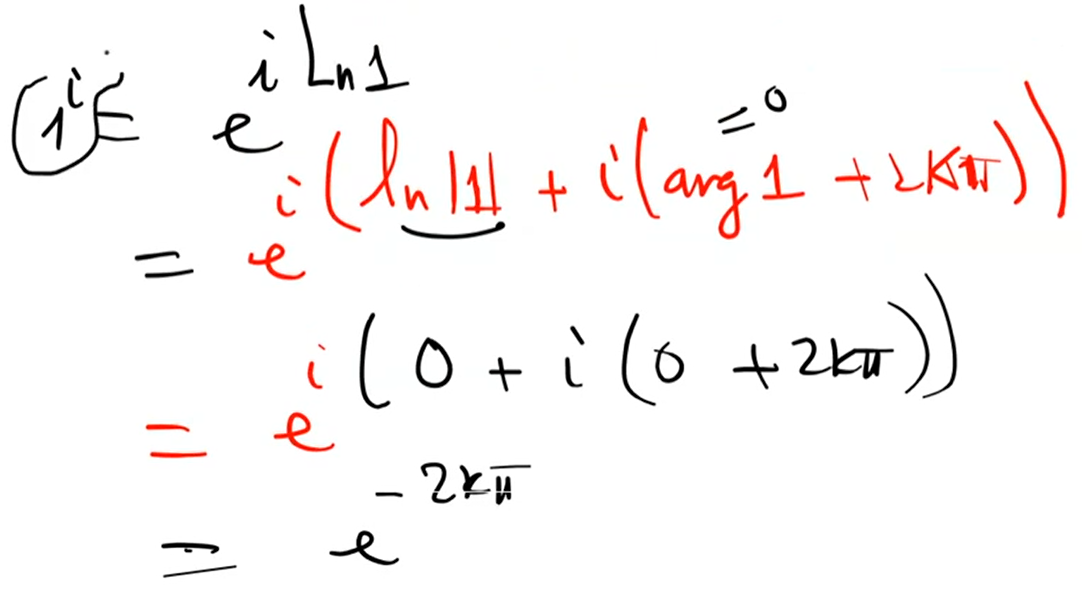 1^i = e^{i Ln 1}
= e^{i(ln |1| + i(arg 1 + 2kπ))} = 0
= e^{i(0 + i(0 + 2kπ))}
= e^{-2kπ}